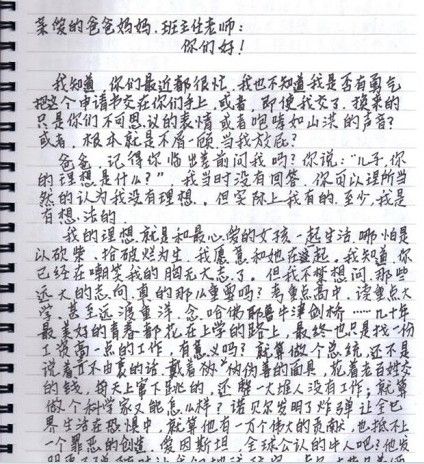 亲爱的爸爸妈妈、班主任老师：
你们好！
我知道，你们最近都很忙，我也不知道我是否有勇气
把这个申请书交在你们手上，或者，即便我交了，换来的
只是你们不可思议的表情或者咆哮如山洪的声音？
或者，根本就是不屑一顾，当我放屁？
爸爸，记得你临出差前问我吗？你说：“儿子，你
的理想是什么？”，我当时没有回答，你可以理所当
然的认为我没有理想，但实际上我有的，至少，我是
有想法的。
我的理想就是和最心爱的女孩一起生活，哪怕是
以砍柴、拾破烂为生，我愿意和她在一起。我知道，你
已经在嘲笑我的胸无大志了，但我不禁想问，那些
远大的志向，真的那么重要吗？考重点高中，读重点大
学，甚至远渡重洋，念哈佛耶鲁牛津剑桥……几十年
最美好的青春都花在上学的路上，最终也只是找一份
工资高一点的工作，有意义吗？就算做个总统，还不是
说着言不由衷的话，戴着被“被伪善的面具，花着老百姓交
的钱，每天上窜下跳的，还整一大堆人没有工作；就算
做个科学家又能怎么样？诺贝尔发明了炸弹让全世
界生活在恐惧中，就算他有一万个伟大的贡献，也抵不上
一个罪恶的创造，爱因斯坦，全球公认的牛人吧？他发